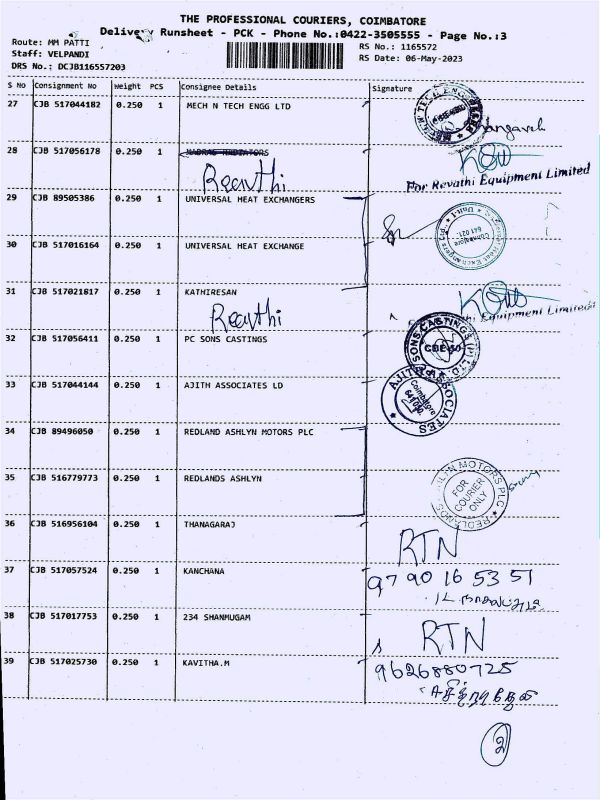 THE PROFESSIONAL COURIERS, COIMBATORE
Delivery Runsheet - PCK - Phone No.:0422-3505555 - Page No.:3
Route: MM PATTI
RS No.: 1165572
Staff: VELPANDI
RS Date: 06-May-2023
DRS No.: DCJB116557203
S No Consignment No Weight PCS Consignee Details Signature
27 CJB 517044182 0.250 1 MECH N TECH ENGG LTD
28 CJB 517056178 0.250 1 MADRAS RADIATORS
Revathi
For Revathi Equipment Limited
29 CJB 89505386 0.250 1 UNIVERSAL HEAT EXCHANGERS
30 CJB 517016164 0.250 1 UNIVERSAL HEAT EXCHANGE
Coimbatore
641 021.
31 CJB 517021817 0.250 1 KATHIRESAN
Revathi
Revathi Equipment Limited
32 CJB 517056411 0.250 1 PC SONS CASTINGS
SONS CASTING (P) LTD
CBE-50
33 CJB 517044144 0.250 1 AJITH ASSOCIATES LD
AJITH ASSOCIATES
Coimbatore
34 CJB 89496050 0.250 1 REDLAND ASHLYN MOTORS PLC
35 CJB 516779773 0.250 1 REDLANDS ASHLYN
REDLANDS ASHLYN MOTORS PLC
FOR
COURIER
ONLY
36 CJB 516956104 0.250 1 THANAGARAJ
RTN
37 CJB 517057524 0.250 1 KANCHANA
97 90 16 53 51
38 CJB 517017753 0.250 1 234 SHANMUGAM
RTN
39 CJB 517025730 0.250 1 KAVITHA.M
9626880725
2